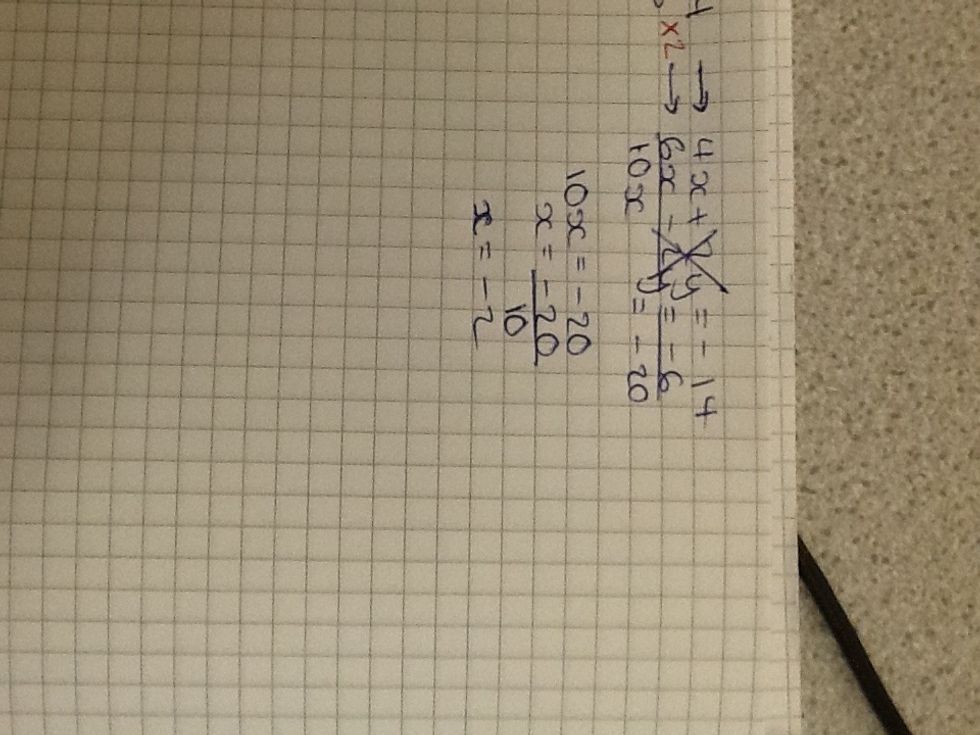 4 → 4x + 2y = - 14
x2 → 6x - 2y = - 6
10x = - 20
10x = -20
x = -20
10
x = -2